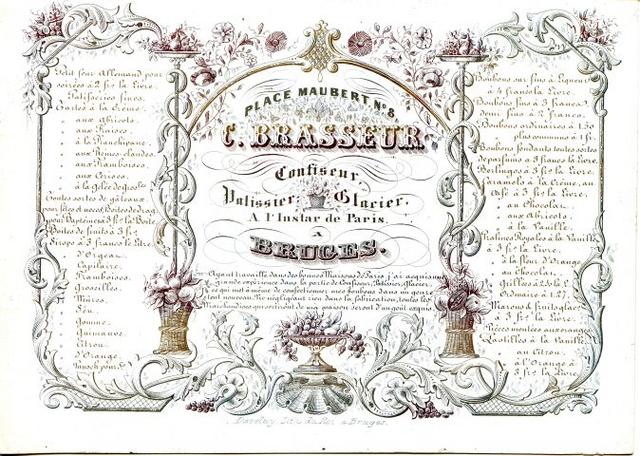 Petit four Allemand pour
soirées à 2 frs la Livre.
Patisseries fines.
Tartes à la Crême.
aux abricots.
aux fraises
à la
aux Reines-claudes
aux Framboises
aux Cerises.
à la Gelée de
Toutes sortes de gâteaux
pour fêtes et noces, Boites de drag.
pour Baptêmes à 5 frs la Boite
Boites de fruits à 3 frs
Sirops à 3 francs le Litre.
d'Orgeat.
Capilaire.
Framboises.
Groseilles.
Mûres.
Gomme.
Guimauve.
Citron.
d'Orange.
Punsch
PLACE MAUBERT, No 8,
C. BRASSEUR
Confiseur,
Patissier, Glacier,
A l'Instar de Paris.
A
BRUGES.
Ayant travaillé dans des bonnes Maisons de Paris, j'ai acquis une
grande expérience dans la partie de Confiseur, Patissier, Glacier,
ce qui met à même de confectionner mes bonbons dans un genre
tout nouveau. Ne négligeant rien dans la fabrication, toutes les
Marchandises qui sortiront de ma maison seront d'un goût exquis.
Bonbons sur fins à Liqueur
à 4 frans la Livre.
Bonbons fins à 3 francs.
demi fins à 2 francs.
Bonbons ordinaires à 1.50
plus communs à 1 fr.
Bonbons fondants toutes sortes
de parfums a 3 francs la livre.
Berlingos à 3 frs la Livre.
Caramels à la Crême, au
Café à 3 frs la Livre.
au Chocolat.
aux Abricots.
à la Vanille.
Pralines Royales à la Vanille
à 3 frs la Livre.
à la fleur d'Orange
au Chocolat.
Grillées à 2.50 la L.
Ordinaire à 1.25
Marons à fruits glacés
à 3 frs la Livre.
Pièces montées aux oranges
Pastilles à la Vanille.
au Citron.
à l'Orange à
3 frs la Livre.
Daveluy, Lith. du Roi a Bruges.